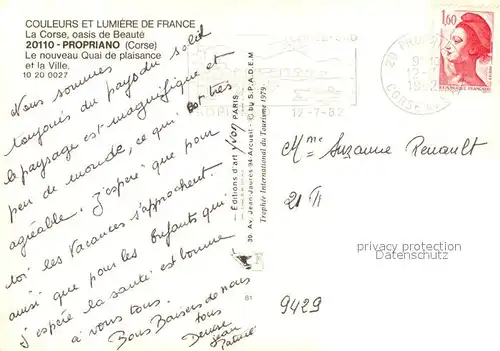 COULEURS ET LUMIÈRE DE FRANCE
La Corse, oasis de Beauté
20110 - PROPRIANO (Corse)
Le nouveau Quai de plaisance
et la Ville.
10 20 0027
Nous sommes
toujours du pays du soleil
le paysage est magnifique et
peu de monde, ce qui est très
agréable. J'espère que pour
toi les vacances s'approchent.
ainsi que pour les Enfants qui
j'espère la santé est bonne
à vous tous.
Bons Baisers de nous
tous
Denise
Jean
Patrick
Editions d'art yvon PARIS
30, Av. Jean-Jaurès 94-Arcueil • © by S.P.A.D.E.M
Trophée International du Tourisme 1979
81
12-7-82
1,60
REPUBLIQUE FRANÇAISE
20 PROP
12-7
CORSE
Mme Suzanne Renault
21 π
9429
privacy protection
akpool.com